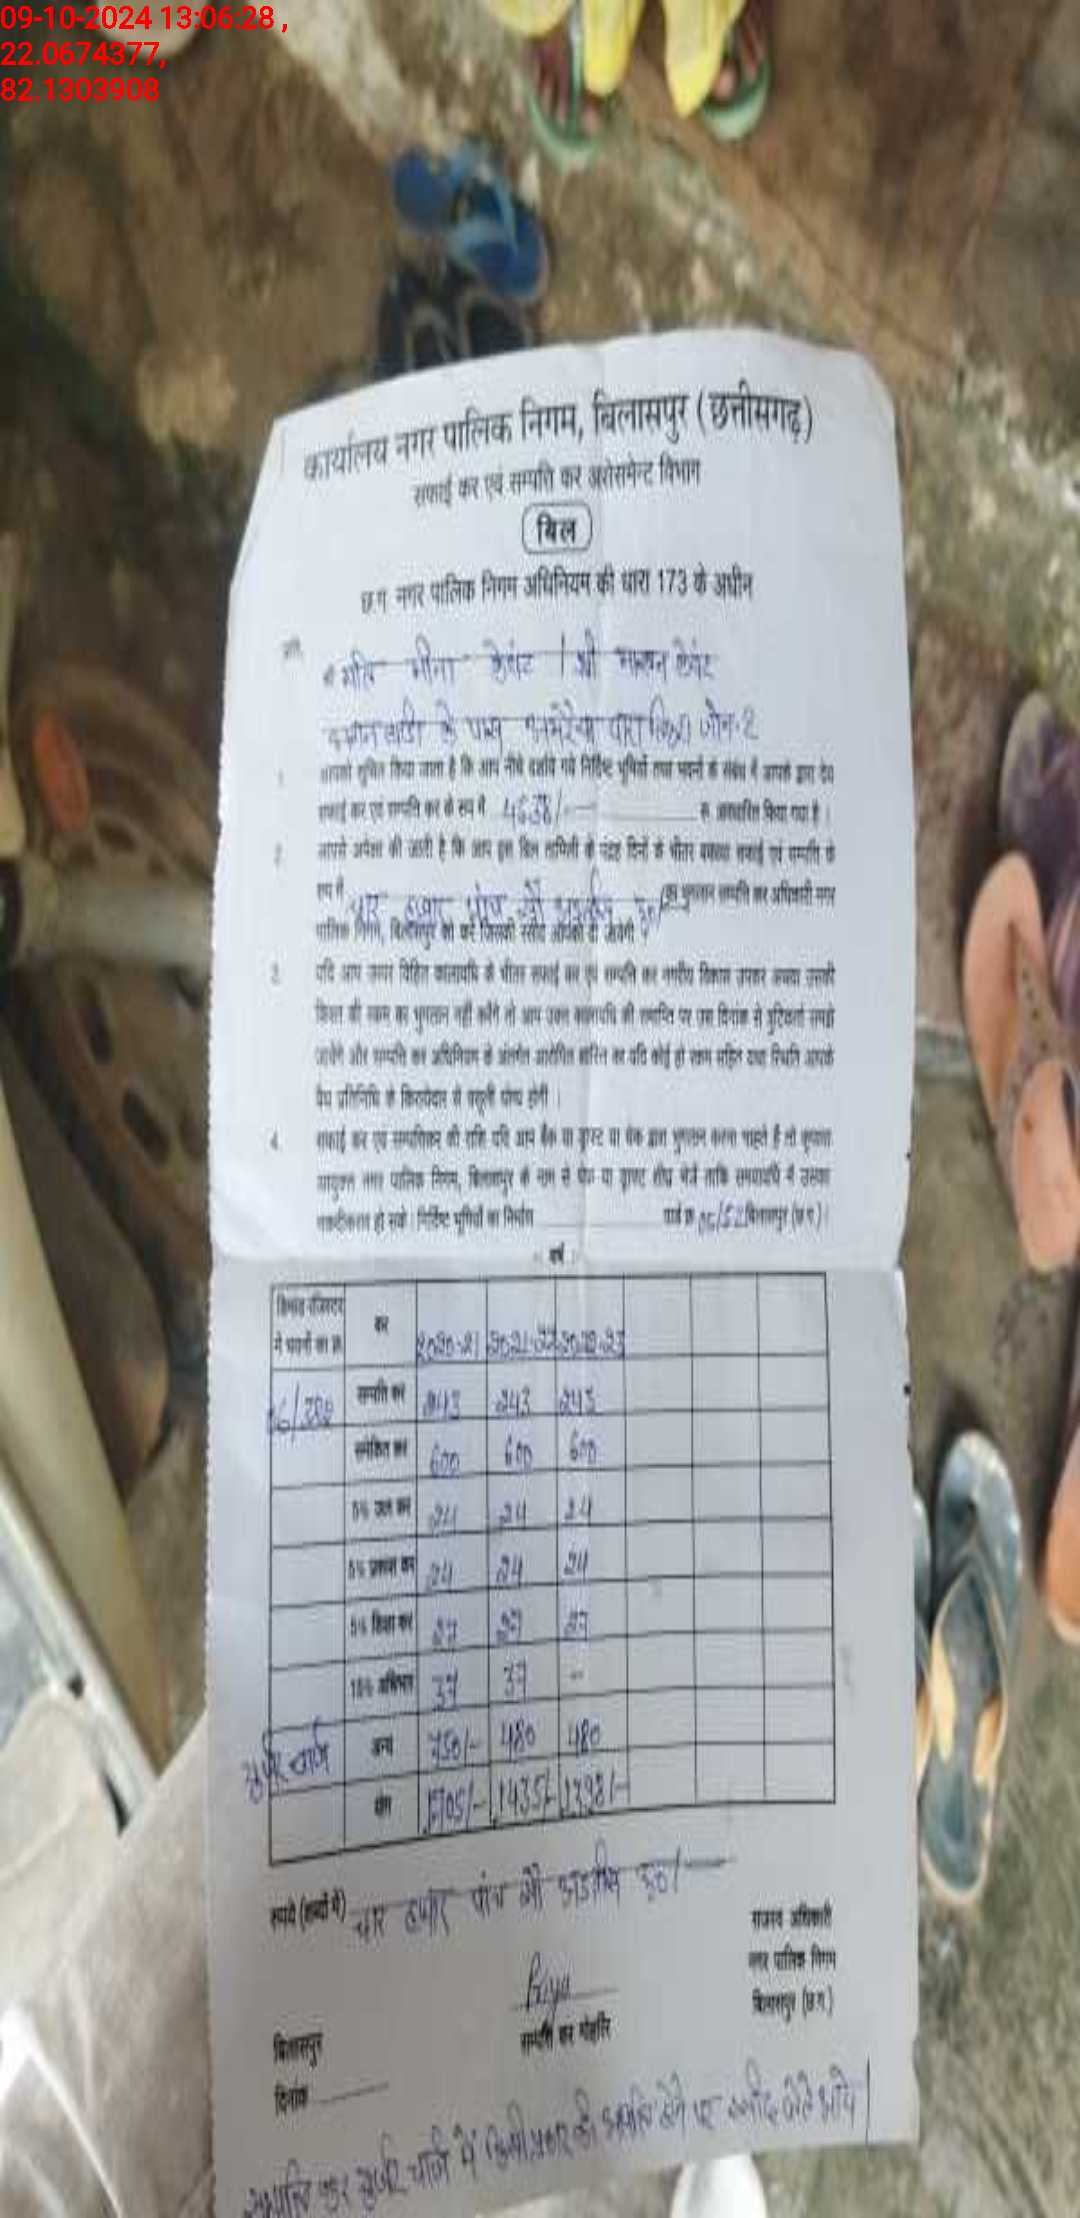 09-10-2024 13:06:28 ,
22.0674377,
82.1303908
कार्यालय नगर पालिक निगम, बिलासपुर (छत्तीसगढ़)
सफाई कर एवं सम्पत्ति कर असेसमेन्ट विभाग
बिल
छ.ग. नगर पालिक निगम अधिनियम की धारा 173 के अधीन
प्रति,
मति मीना केवंट / श्री माखन केवंट
के पास पारा जोन-2
1. आपको सूचित किया जाता है कि आप नीचे दर्शाये गये निर्दिष्ट भूमियों तथा भवनों के संबंध में आपके द्वारा देय
सफाई कर एवं सम्पत्ति कर के रूप में 4538/- रु. अवधारित किया गया है ।
2. आपसे अपेक्षा की जाती है कि आप इस बिल तामिली के पंद्रह दिनों के भीतर बकाया सफाई एवं सम्पत्ति के
रूप में चार हजार पांच सौ अड़तीस रू०/ का भुगतान सम्पत्ति कर अधिकारी नगर
पालिक निगम, बिलासपुर को करें जिसकी रसीद आपको दी जावेगी ।
3. यदि आप ऊपर विहित कालावधि के भीतर सफाई कर एवं सम्पत्ति कर नगरीय विकास उपकर अथवा उसकी
किस्त की रकम का भुगतान नहीं करेंगे तो आप उक्त कालावधि की समाप्ति पर उस दिनांक से त्रुटिकर्ता समझे
जायेंगे और सम्पत्ति कर अधिनियम के अंतर्गत आरोपित शास्ति का यदि कोई हो रकम सहित यथा स्थिति आपके
वैध प्रतिनिधि के किरायेदार से वसूली योग्य होगी ।
4. सफाई कर एवं सम्पत्तिकर की राशि यदि आप बैंक या ड्राफ्ट या चेक द्वारा भुगतान करना चाहते हैं तो कृपया
आयुक्त नगर पालिक निगम, बिलासपुर के नाम से चेक या ड्राफ्ट शीघ्र भेजें ताकि समयावधि में उसका
नकदीकरण हो सके । निर्दिष्ट भूमियों का निर्धारण वार्ड क्र. 06/52 बिलासपुर (छ.ग.) ।
वर्ष
डिमांड रजिस्टर में भवनों का क्र. कर 2020-21 2021-22 2022-23
16/388 सम्पत्ति कर 243 243 243
समेकित कर 600 600 600
5% जल कर 24 24 24
5% प्रकाश कर 24 24 24
5% शिक्षा कर 27 27 27
15% अधिभार 37 37 -
यूजर चार्ज अन्य 750/- 480 480
योग 1705/- 1435/- 1398/-
रूपये (शब्दों में) चार हजार पांच सौ अड़तीस रू०/-
राजस्व अधिकारी
नगर पालिक निगम
बिलासपुर (छ.ग.)
Priya
सम्पत्ति कर मोहर्रिर
बिलासपुर
दिनांक
सम्पत्ति कर यूजर चार्ज में किसी प्रकार की आपत्ति होने पर रसीद लेते आये।